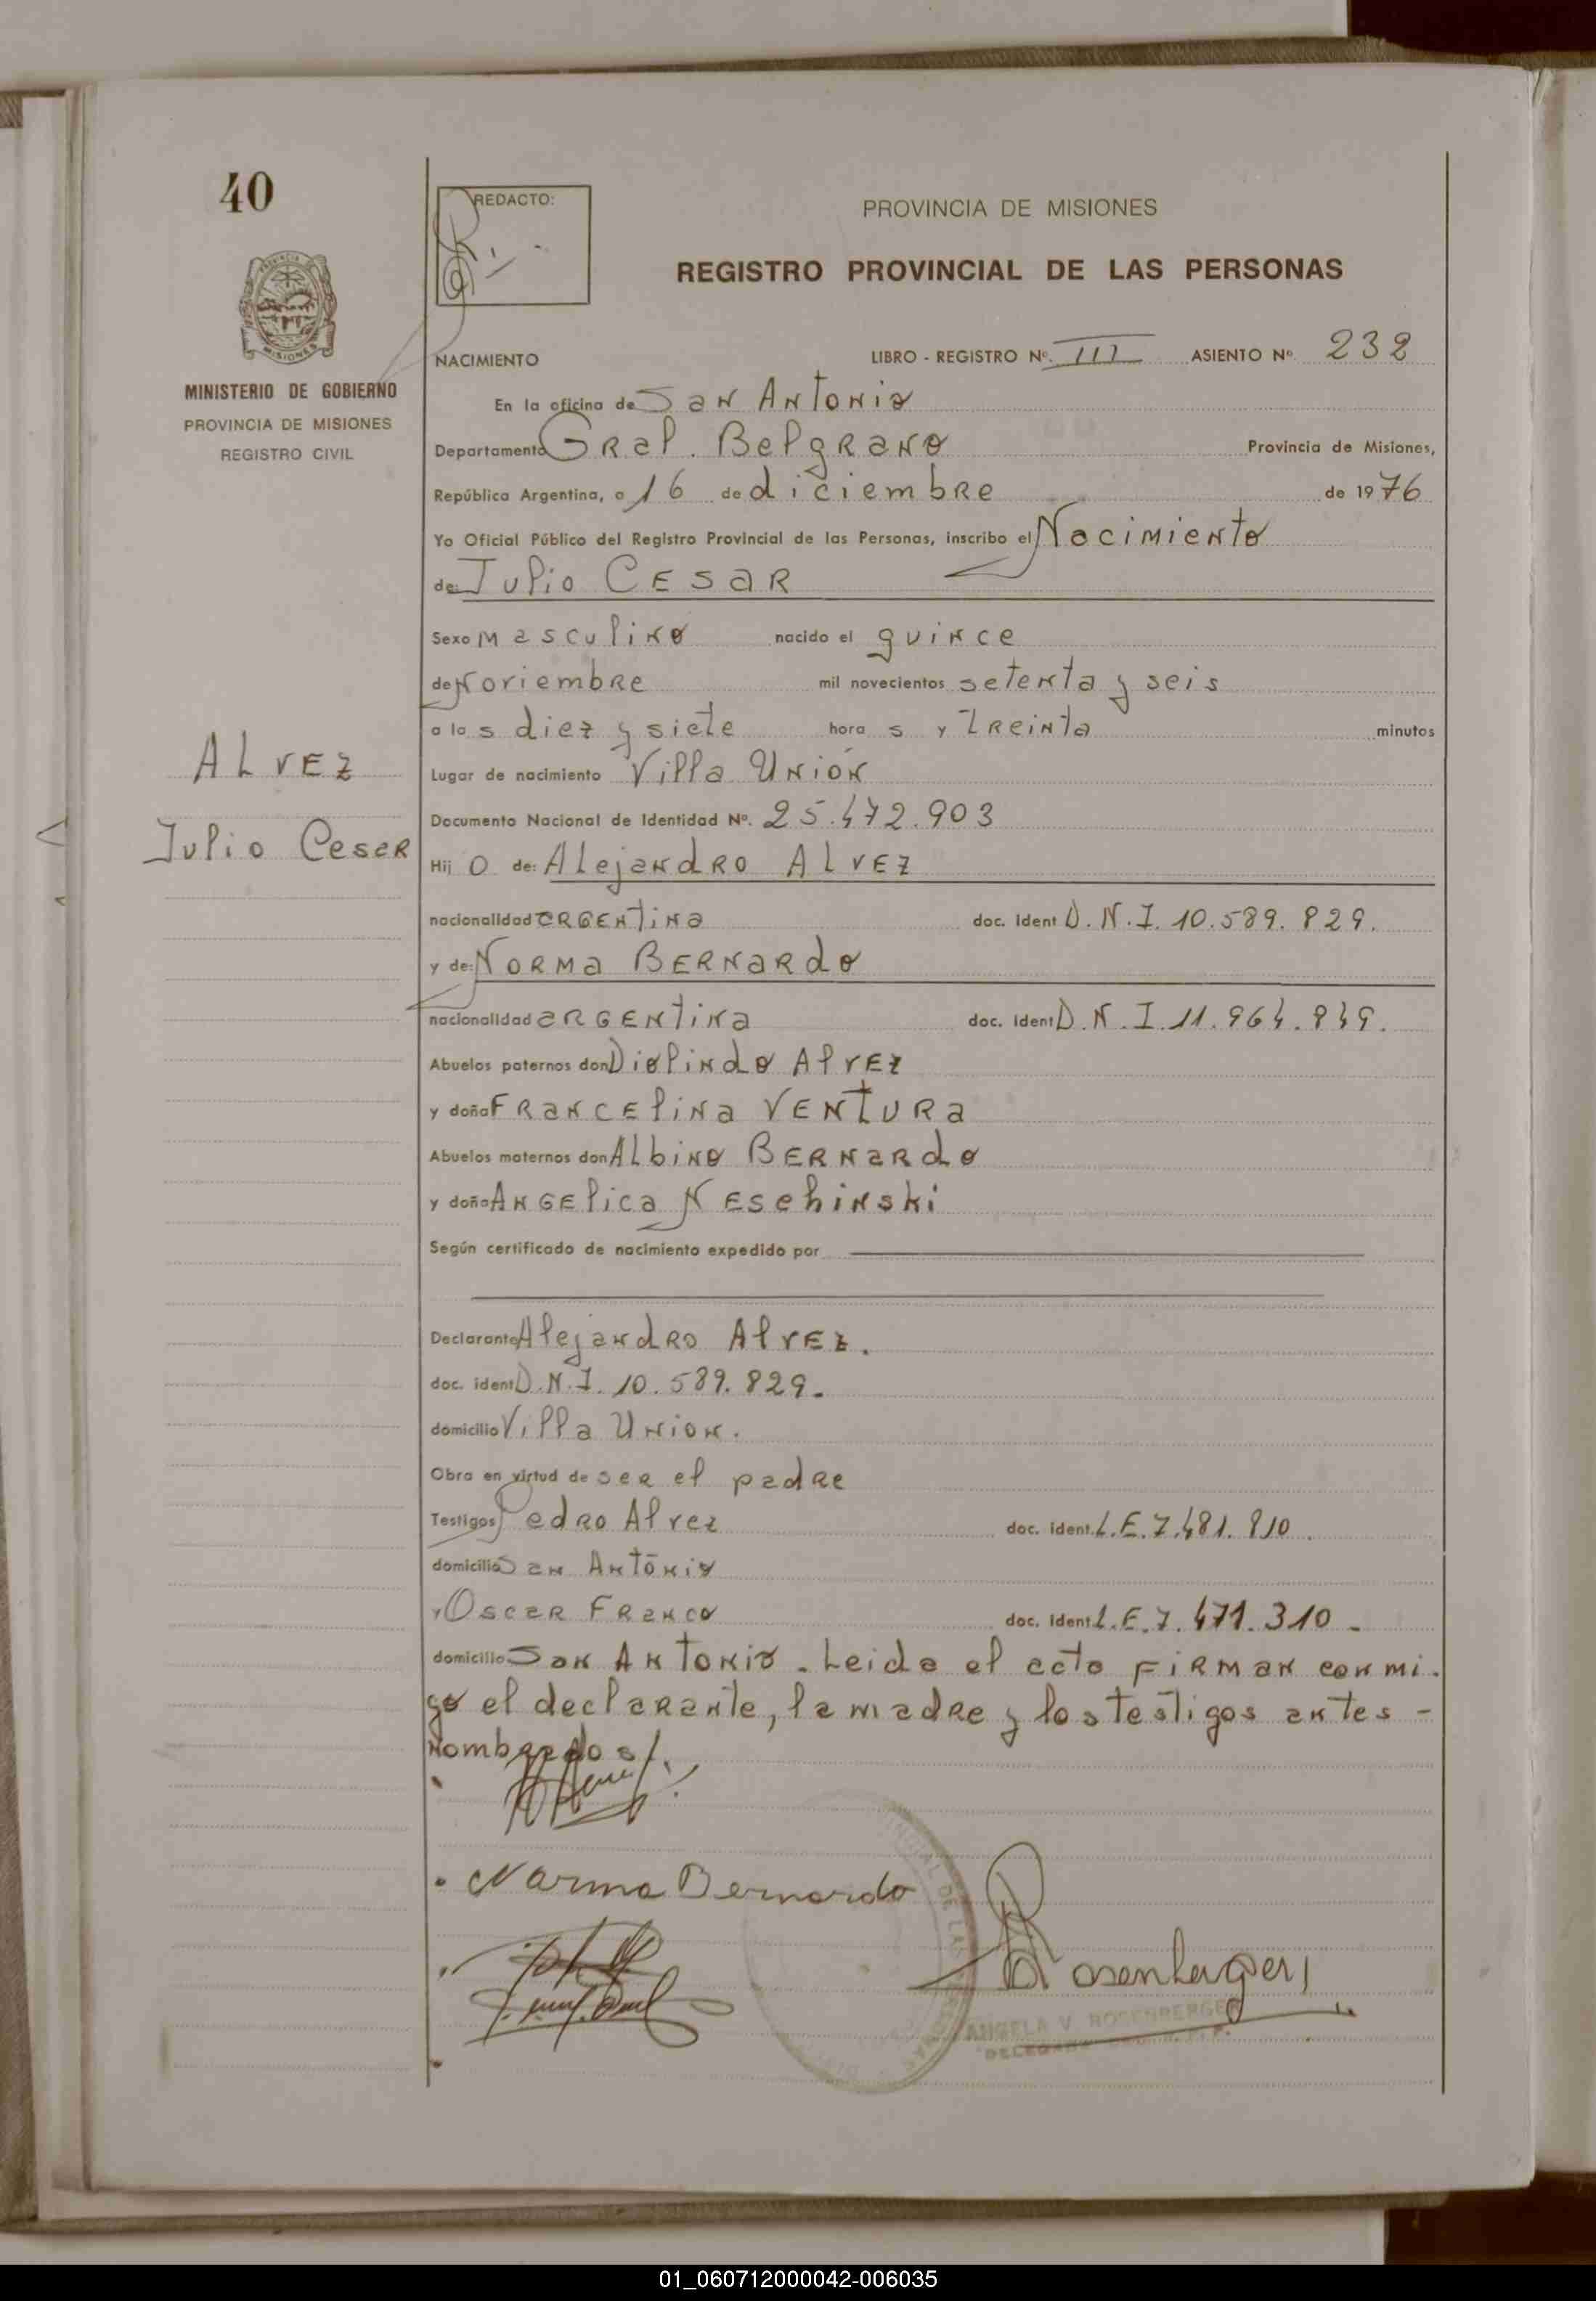 40
REDACTO:
PROVINCIA DE MISIONES
REGISTRO PROVINCIAL DE LAS PERSONAS
MISIONES
MINISTERIO DE GOBIERNO
PROVINCIA DE MISIONES
REGISTRO CIVIL
NACIMIENTO LIBRO - REGISTRO Nº. III ASIENTO Nº 232
En la oficina de San Antonio
Departamento Gral. Belgrano Provincia de Misiones,
República Argentina, a 16 de diciembre de 1976
Yo Oficial Público del Registro Provincial de las Personas, inscribo el Nacimiento
de: Julio Cesar
Sexo masculino nacido el quince
de Noviembre mil novecientos setenta y seis
a las diez y siete horas y treinta minutos
ALVEZ
Julio Cesar
Lugar de nacimiento Villa Unión
Documento Nacional de Identidad Nº. 25.472.903
Hijo de: Alejandro ALVEZ
nacionalidad argentina doc. ident D.N.I. 10.589.829.
y de: Norma BERNardo
nacionalidad argentina doc. ident D.N.I. 11.964.849.
Abuelos paternos don Diolindo Alvez
y doña Francelina Ventura
Abuelos maternos don Albino BERNardo
y doña Angelica Neschinski
Según certificado de nacimiento expedido por
Declarante Alejandro Alvez.
doc. ident D.N.I. 10.589.829.
domicilio Villa Union.
Obra en virtud de ser el padre
Testigos Pedro Alvez doc. ident. L.E. 7.481.810.
domicilio San António
y Oscar Franco doc. ident L.E. 7.471.310.-
domicilio San Antonio. Leida el acta firman conmi-
go el declarante, la madre y los testigos antes -
nombrados/.
Norma Bernardo
Rosenberger
ANGELA V. ROSENBERGER
01_060712000042-006035